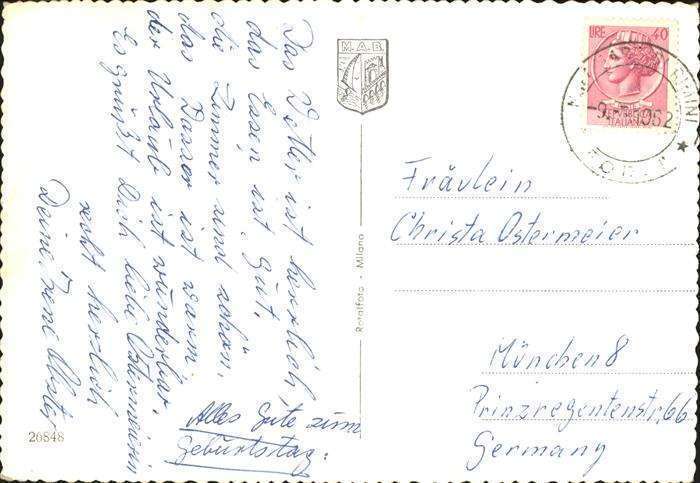 Das Wetter ist herrlich,
das Essen ist gut.
die Zimmer sind schön.
das Wasser ist warm.
der Urlaub ist wunderbar.
Es grüßt Dich liebe Ostermeierin
recht herzlich
Deine
Alles Gute zum
Geburtstag!
26848
M.A.B.
Rotalfoto - Milano
LIRE 40
ITALIANA
1962
FORLI
Fräulein
Christa Ostermeier
München 8
Prinzregentenstr. 66
Germany